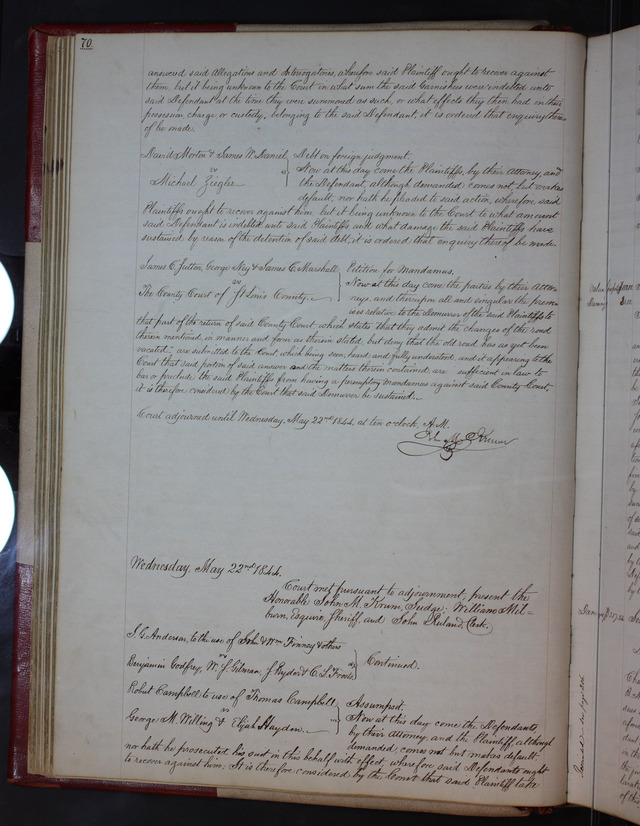 70.
answered said allegations and Interrogatories, wherefore said Plaintiff ought to recover against
them, but it being unknown to the Court in what sum the said Garnishees were indebted unto
said Defendant at the time they were summoned as such, or what effects they then had in their
possession charge or custody, belonging to the said Defendant, it is ordered that enquiry there-
of be made.
David Morton & James W. Daniel, Debt on foreign judgment.
vs Now at this day come the Plaintiffs, by their Attorney, and
Michael Ziegler the Defendant, although demanded, comes not, but makes
default, nor hath he pleaded to said action, wherefore, said
Plaintiffs ought to recover against him but it being unknown to the Court to what amount
said Defendant is indebted unto said Plaintiffs and what damage the said Plaintiffs have
sustained by reason of the detention of said debt, it is ordered that enquiry thereof be made.
James C. Sutton, George Ney & James C. Marshall Petition for Mandamus.
vs Now at this day come the parties by their Attor-
The County Court of St Louis County. neys, and thereupon all and singular the prem-
ises relative to the Demurrer of the said Plaintiffs to
that part of the return of said County Court which states that they admit the changes of the road
therein mentioned, in manner and form as therein stated but deny that the old road has as yet been
vacated, are submitted to the Court which being seen, heard, and fully understood, and it appearing to the
Court that said portion of said answer and the matters therein contained are sufficient in law to
bar or preclude the said Plaintiffs from having a peremptory Mandamus against said County Court,
it is therefore considered by the Court that said Demurrer be sustained.
Court adjourned until Wednesday, May 22nd 1844, at ten o'clock, A.M.
M. Krum
Wednesday, May 22nd 1844.
Court met pursuant to adjournment, present the
Honorable John M. Krum, Judge; William Mil-
burn, Esquire, Sheriff, and John Ruland Clerk.
J. G. Anderson, to the use of John & Wm Finney & others
vs Continued.
Benjamin Godfrey, W. S. Gilman, J. Ryder & C. L. Foote
Robert Campbell to use of Thomas Campbell Assumpsit.
vs Now at this day come the Defendants
George M. Willing & Elijah Hayden. by their Attorney, and the Plaintiff, although
demanded, comes not but makes default
nor hath he prosecuted his suit in this behalf with effect, wherefore said Defendants ought
to recover against him; It is therefore considered by the Court that said Plaintiff take